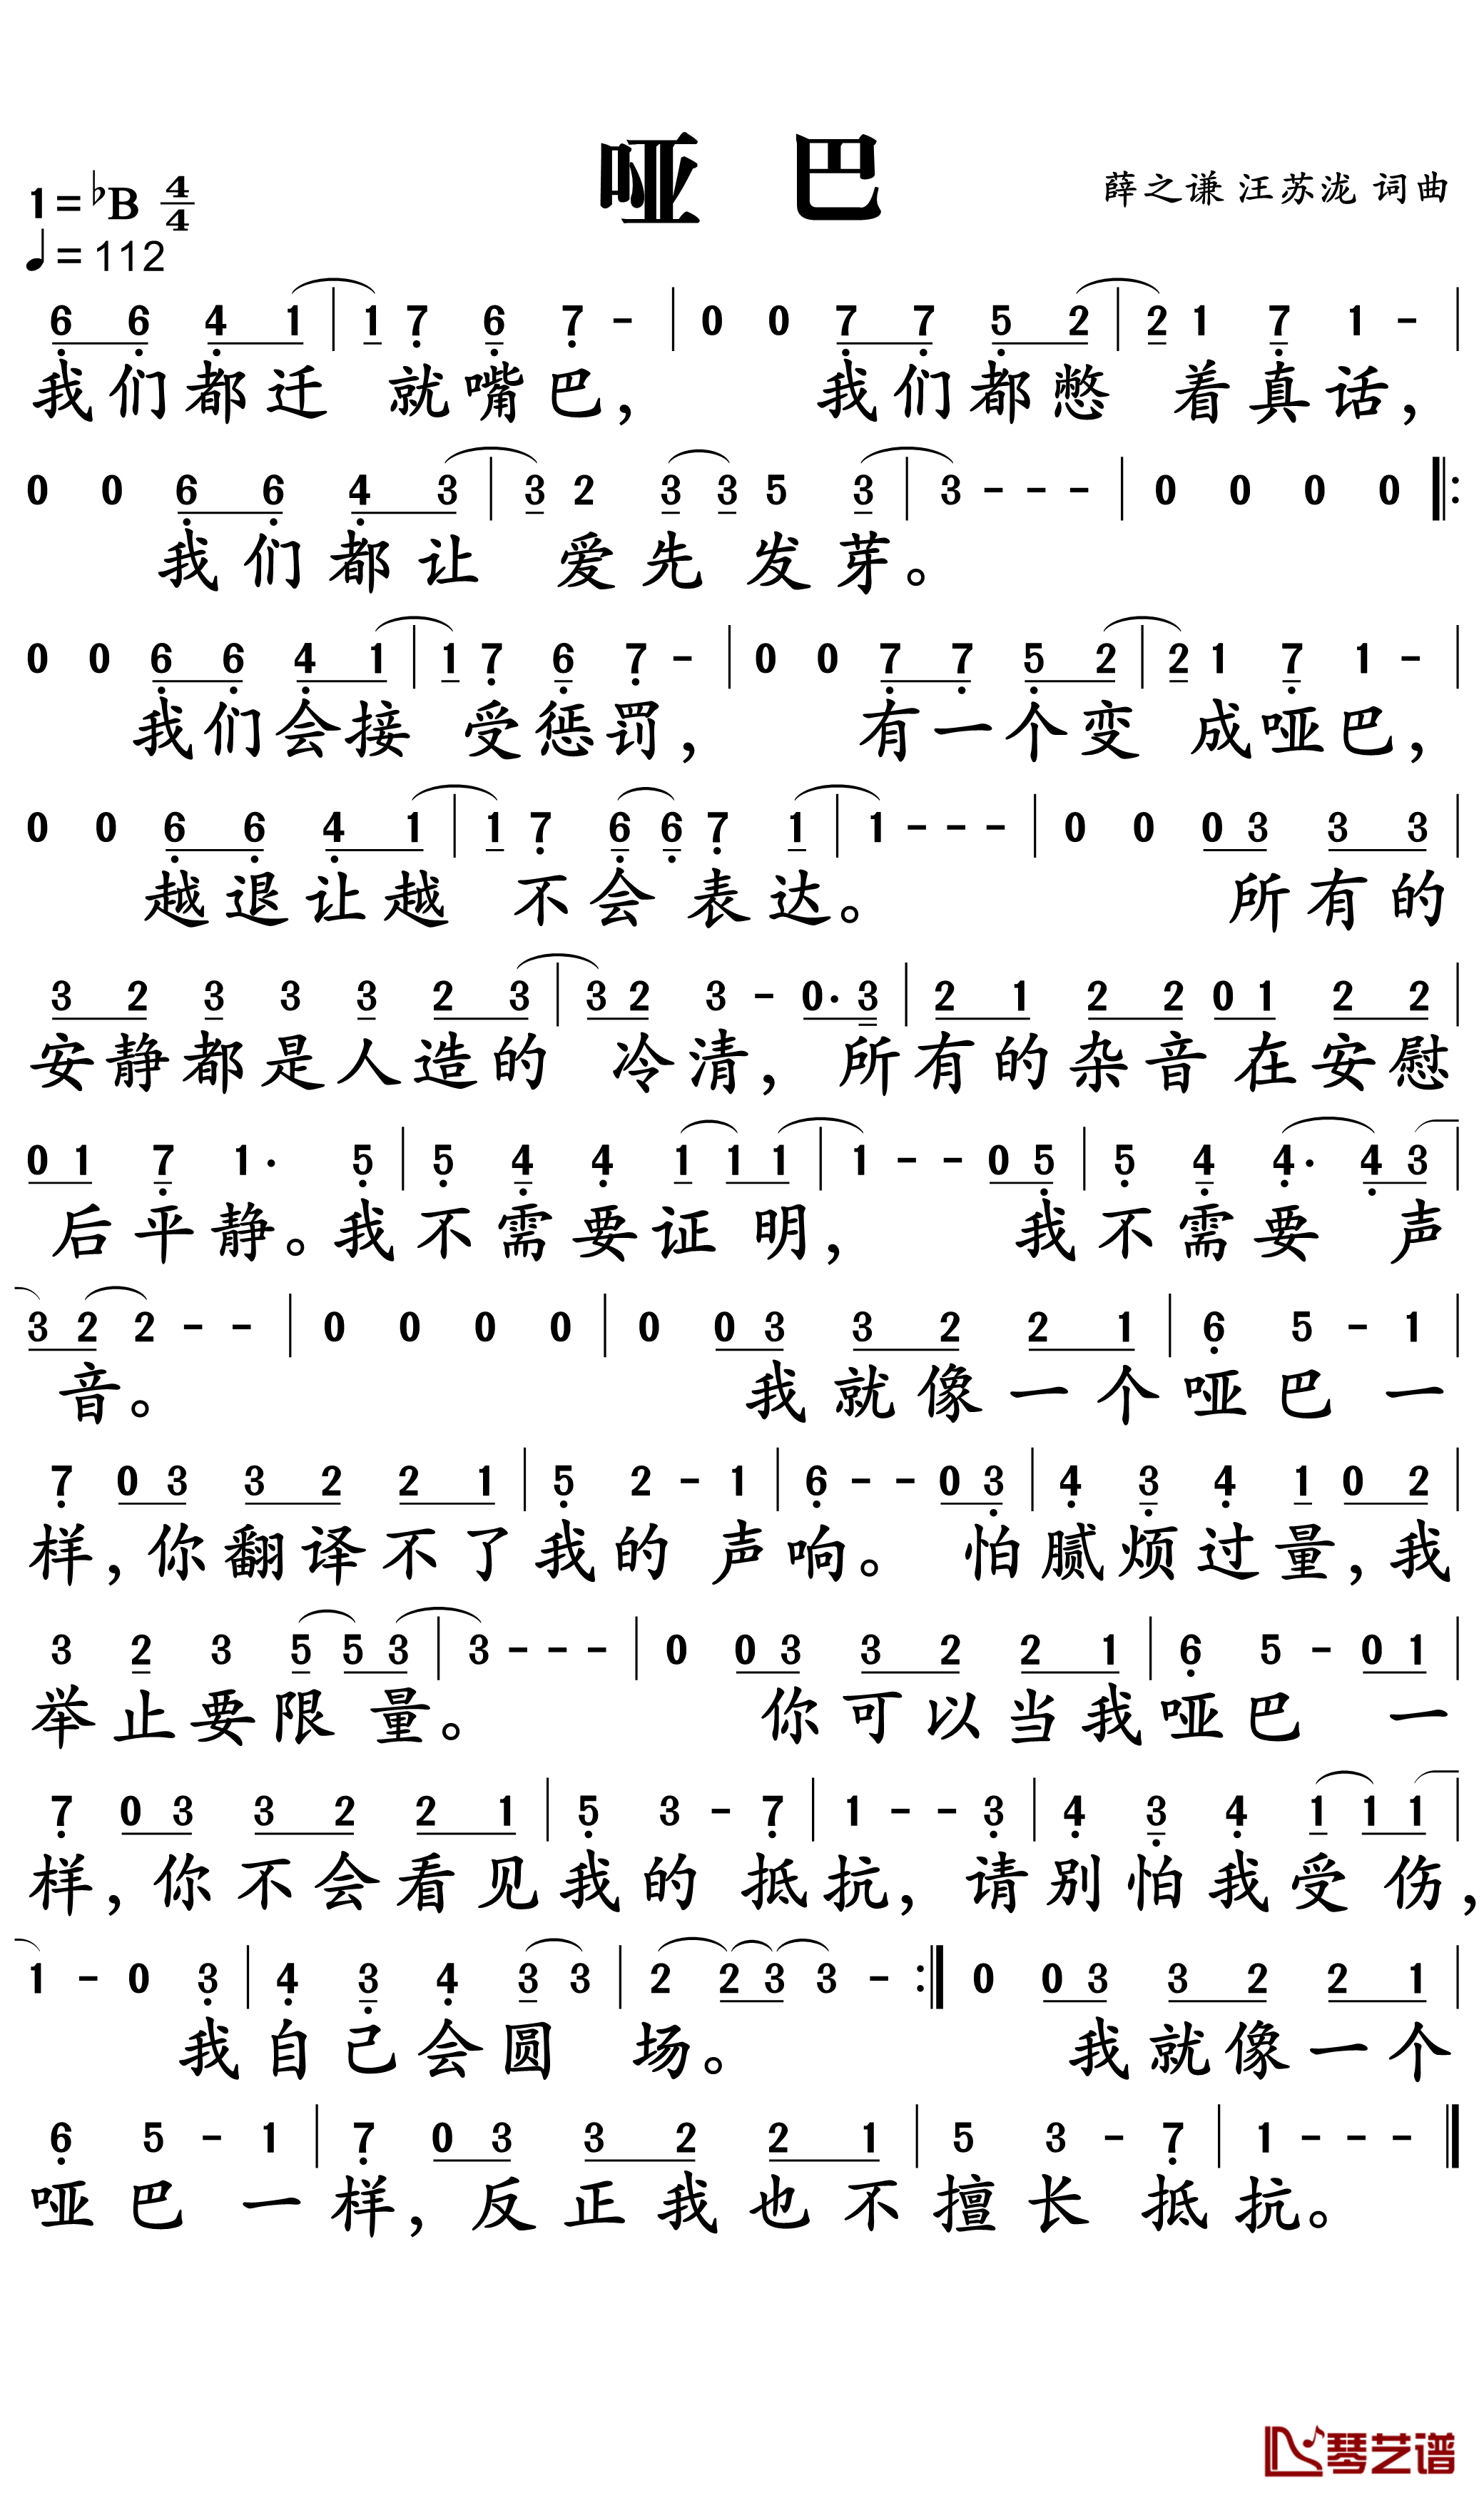 哑 巴
薛之谦 汪苏泷 词曲
1=♭B 4/4
♩=112
6 6 4 1 | 1 7 6 7 - | 0 0 7 7 5 2 | 2 1 7 1 - |
我们都还 就嘴巴, 我们都憋 着真话,
0 0 6 6 4 3 | 3 2 3 3 5 3 | 3 - - - | 0 0 0 0 ‖:
我们都让 爱先发芽。
0 0 6 6 4 1 | 1 7 6 7 - | 0 0 7 7 5 2 | 2 1 7 1 - |
我们会接 受惩罚, 有一个变 成哑巴,
0 0 6 6 4 1 | 1 7 6 6 7 1 | 1 - - - | 0 0 0 3 3 3
越退让越 不会表达。 所有的
3 2 3 3 3 2 3 | 3 2 3 - 0· 3 | 2 1 2 2 0 1 2 2 |
安静都是人造的 冷清, 所有的杂音在安慰
0 1 7 1· 5 | 5 4 4 1 1 1 | 1 - - 0 5 | 5 4 4· 4 3 |
后平静。我不需要证明, 我不需要 声
3 2 2 - - | 0 0 0 0 | 0 0 3 3 2 2 1 | 6 5 - 1 |
音。 我就像一个哑巴 一
7 0 3 3 2 2 1 | 5 2 - 1 | 6 - - 0 3 | 4 3 4 1 0 2 |
样,你翻译不了我的声响。 怕腻烦过量,我
3 2 3 5 5 3 | 3 - - - | 0 0 3 3 2 2 1 | 6 5 - 0 1 |
举止要限量。 你可以当我哑巴 一
7 0 3 3 2 2 1 | 5 3 - 7 | 1 - - 3 | 4 3 4 1 1 1 |
样,你不会看见我的抵抗,请别怕我受伤,
1 - 0 3 | 4 3 4 3 3 | 2 2 3 3 - :‖ 0 0 3 3 2 2 1 |
我自己会圆 场。 我就像一个
6 5 - 1 | 7 0 3 3 2 2 1 | 5 3 - 7 | 1 - - - ‖
哑巴 一样,反正我也不擅长 抵抗。
琴艺谱